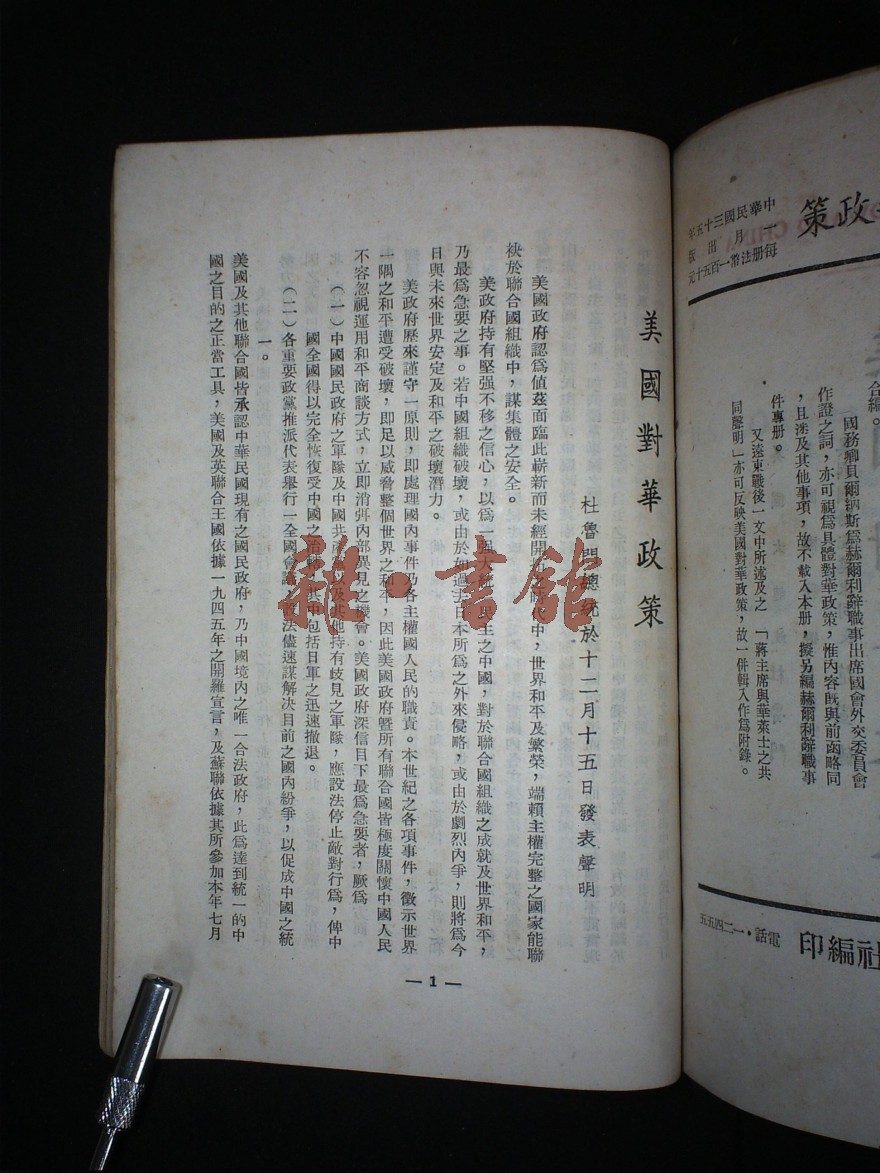 政策
中華民國三十五年
一月出版
每册法幣一百五十元
合編。
國務卿貝爾納斯爲赫爾利辭職事出席國會外交委員會
作證之詞，亦可視爲具體對華政策，惟內容旣與前函略同
，且涉及其他事項，故不載入本册，擬另編赫爾利辭職事
件專册。
又遠東戰後一文中所述及之「蔣主席與華萊士之共
同聲明」亦可反映美國對華政策，故一併輯入作爲附錄。
社編印
電話·一二四五五
美國對華政策
杜魯門總統於十二月十五日發表聲明
美國政府認爲値茲面臨此嶄新而未經開拓之時代中，世界和平及繁榮，端賴主權完整之國家能聯
袂於聯合國組織中，謀集體之安全。
美政府持有堅强不移之信心，以爲一强大統一民主之中國，對於聯合國組織之成就及世界和平，
乃最爲急要之事。若中國組織破壞，或由於如過去日本所爲之外來侵略，或由於劇烈內爭，則將爲今
日與未來世界安定及和平之破壞潛力。
美政府歷來謹守一原則，即處理國內事件乃各主權國人民的職責。本世紀之各項事件，徵示世界
一隅之和平遭受破壞，即足以威脅整個世界之和平，因此美國政府暨所有聯合國皆極度關懷中國人民
不容忽視運用和平商談方式，立即消弭內部異見之機會。美國政府深信目下最爲急要者，厥爲︰
（一）中國國民政府之軍隊及中國共產黨以及其他持有歧見之軍隊，應設法停止敵對行爲，俾中
國全國得以完全恢復受中國之治轄，其中包括日軍之迅速撤退。
（二）各重要政黨推派代表舉行一全國會議，設法儘速謀解決目前之國內紛爭，以促成中國之統
一。
美國及其他聯合國皆承認中華民國現有之國民政府，乃中國境內之唯一合法政府，此爲達到統一的中
國之目的之正當工具，美國及英聯合王國依據一九四五年之開羅宣言，及蘇聯依據其所參加本年七月
— 1 —
龍·書館